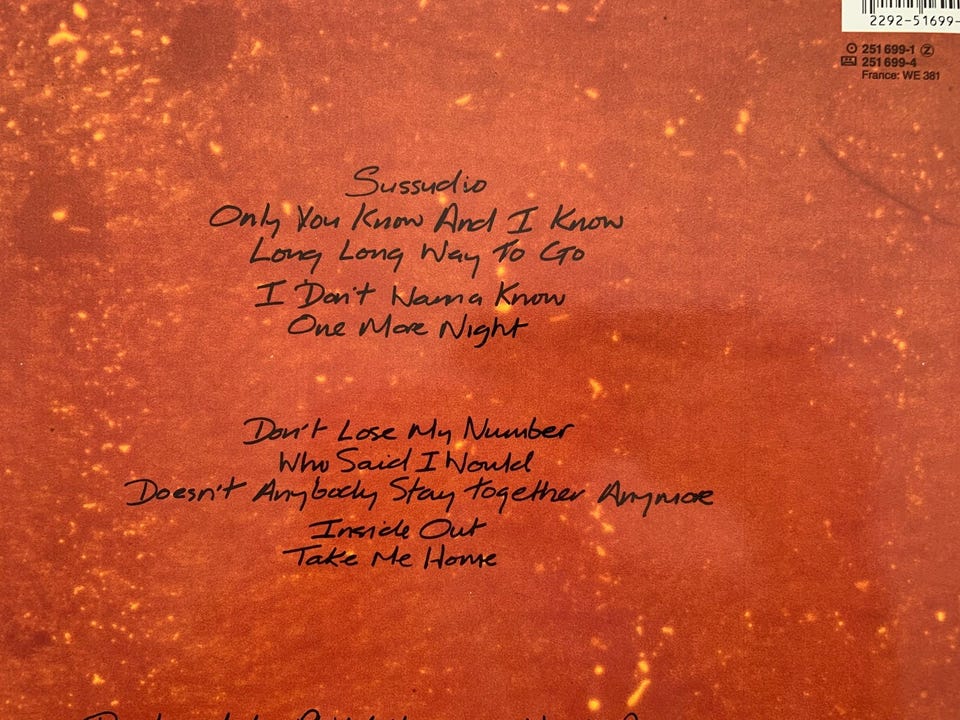 2292-51699-
251 699-1 Ⓩ
251 699-4
France: WE 381
Sussudio
Only You Know And I Know
Long Long Way To Go
I Don't Wanna Know
One More Night
Don't Lose My Number
Who Said I Would
Doesn't Anybody Stay Together Anymore
Inside Out
Take Me Home